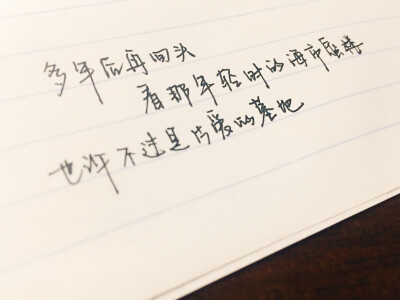 多年后再回头
看那年轻时的海市蜃楼
也许不过是片爱的墓地